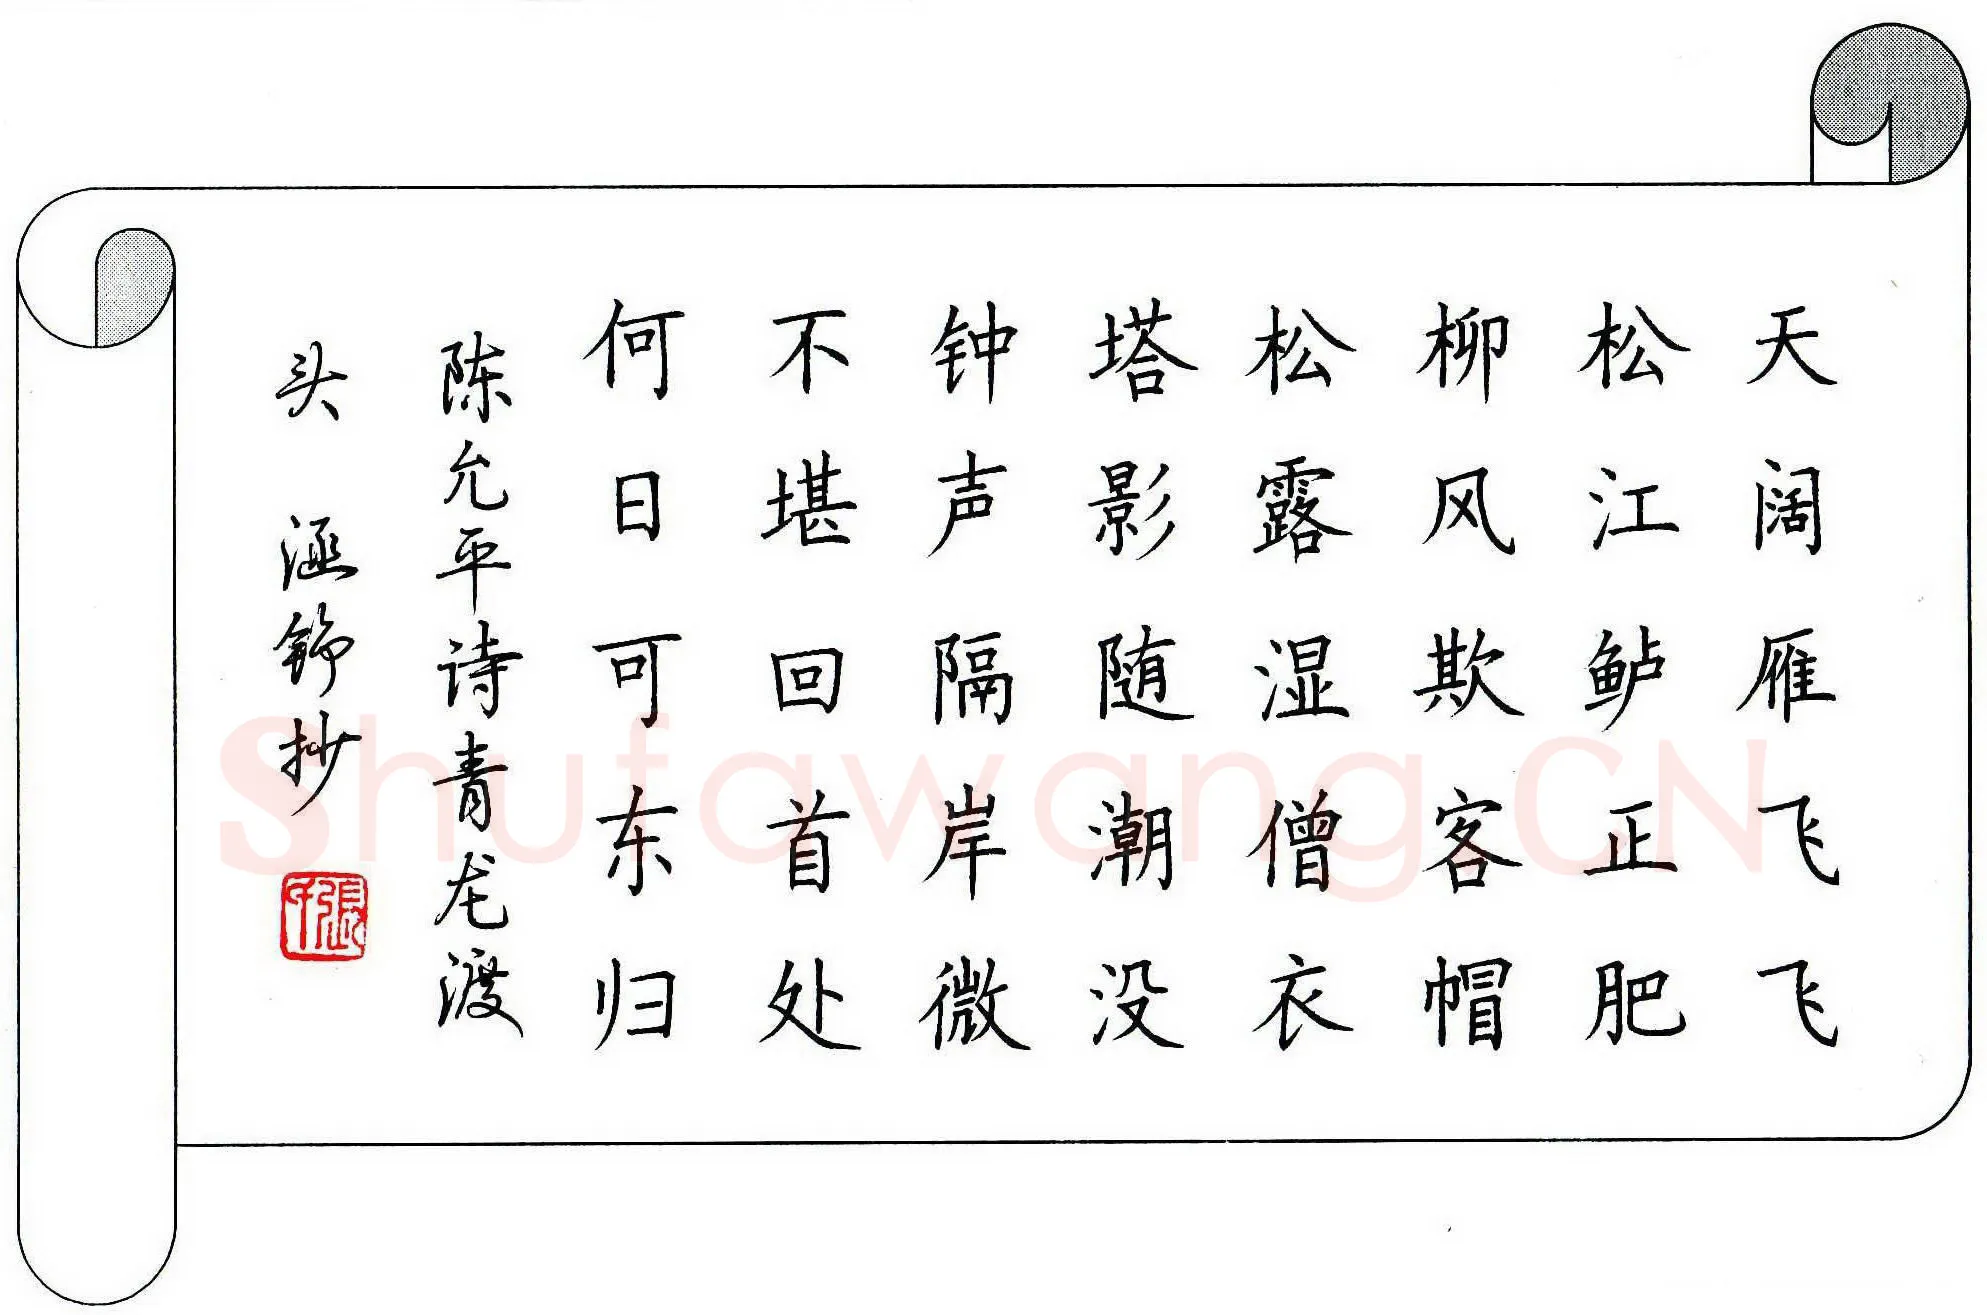 天阔雁飞飞
松江鲈正肥
柳风欺客帽
松露湿僧衣
塔影随潮没
钟声隔岸微
不堪回首处
何日可东归
陈允平诗青龙渡
头 涵铮抄
Shufawang.CN